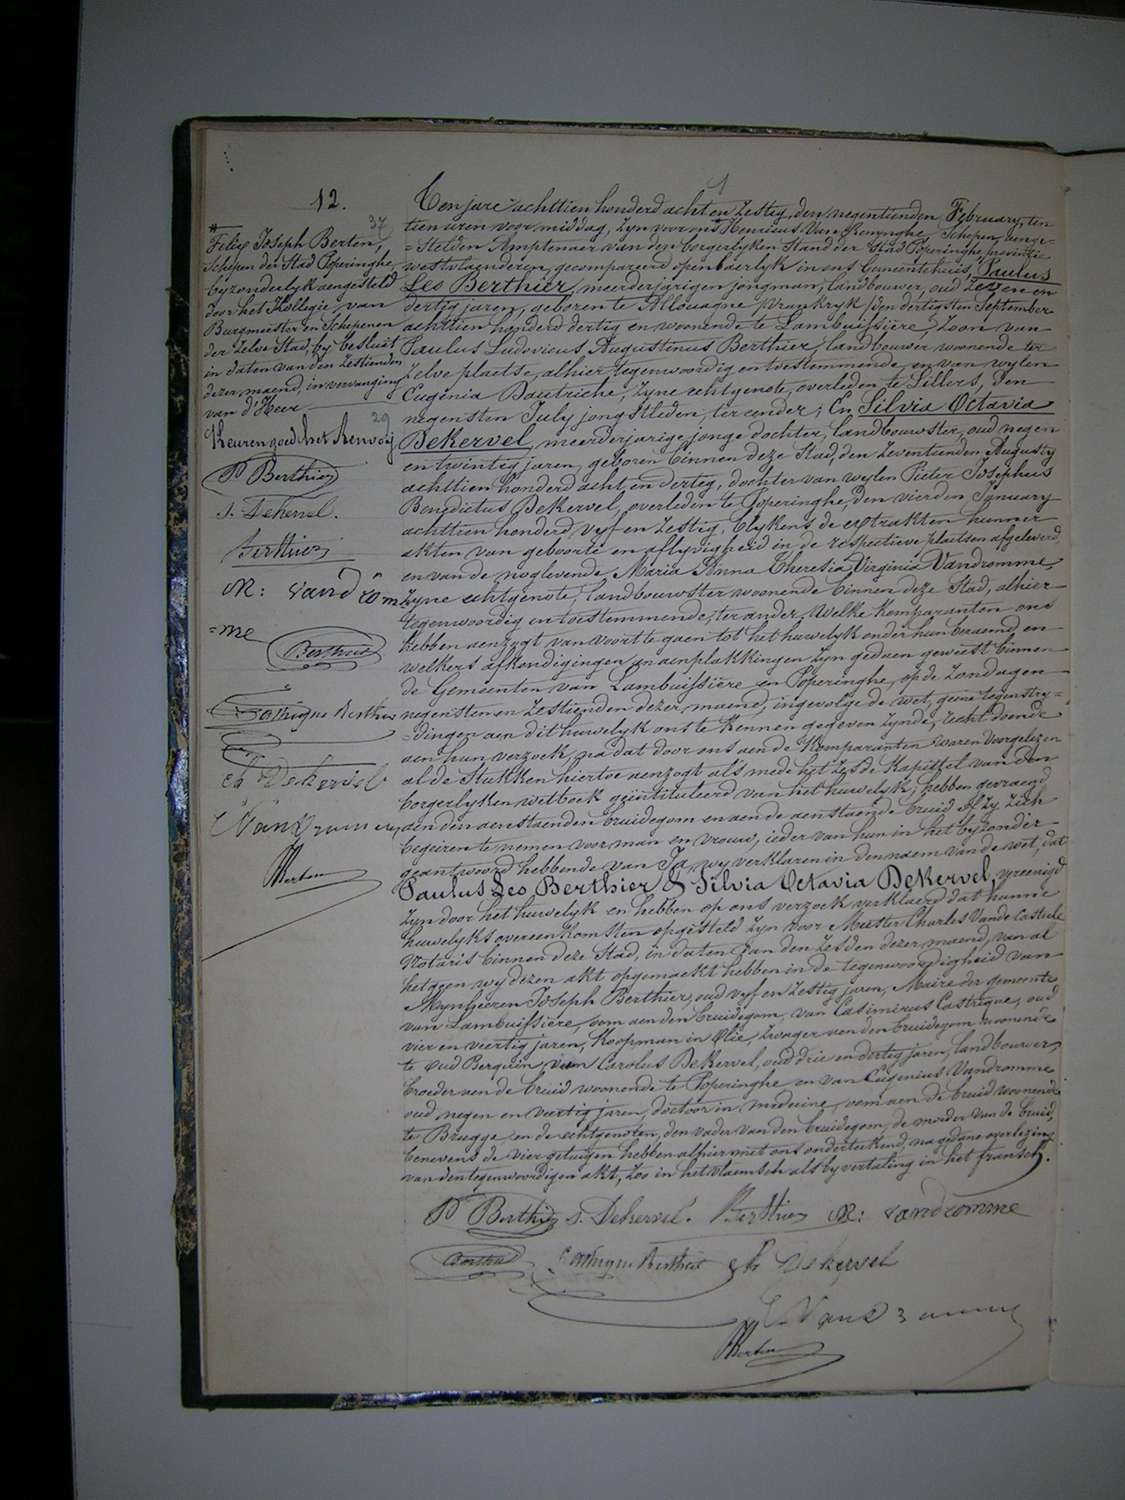 12.
37
* Felix Joseph Berten,
Schepen der Stad Poperinghe,
byzonderlyk aengesteld
door het Kollegie van
Burgmeester en Schepenen
der zelve Stad, by besluit
in daten van den zestienden
dezer maend, in vervanging
van d'Heer
29
Keuren goed het Renvooij
P Berthier
S. Dekervel.
Berthier
M: vandrom
=me
Berthier
Castrique Berthier
Ch Dekervel
E Vandromme
FBerten
1
Ten jare achttien honderd acht en zestig, den negentienden February, ten
tien uren voor middag, zyn voor ons * Henricus Van Renynghe Schepen, aenge-
=stelden Amptenaer van den borgerlyken Stand der Stad Poperinghe, provincie
westvlaenderen, gecompareerd openbaerlyk in ons Gemeentehuis, Paulus
Leo Berthier, meerderjarigen jongman, landbouwer, oud zeven en
dertig jaren, geboren te Allouagne (Vrankryk) den dertigsten September
achttien honderd dertig en woonende te Lambuissière, zoon van
Paulus Ludovicus Augustinus Berthier, landbouwer woonende ter
zelve plaetse, alhier tegenwoordig en toestemmende, en van wylen
Eugénia Dautriche, zyne echtgenote, overleden te Lillers, den
negensten July jongstleden, ter eender; En Silvia Octavia
DeKervel, meerderjarige jonge dochter, landbouwster, oud negen
en twintig jaren, geboren binnen deze Stad, den zeventienden Augusty
achttien honderd acht en dertig, dochter van wylen Pieter Josephus
Benedictus DeKervel, overleden te Poperinghe, den vierden January
achttien honderd vyf en zestig, blykens de extrakten hunner
akten van geboorte en aflyvigheid in de respectieve plaetsen afgeleverd,
en van de noglevende Maria Anna Theresia Virginia Vandromme
zyne echtgenote, landbouwster woonende binnen deze Stad, alhier
tegenwoordig en toestemmende, ter ander. Welke komparanten ons
hebben aenzogt van voort te gaen tot het huwelyk onder hun beraemd en
welkers afkondigingen en aenplakkingen zyn gedaen geweest binnen
de Gemeenten van Lambuissière en Poperinghe, op de Zondagen
negensten en zestienden dezer maend, ingevolge de wet, geene tegenstry-
=dingen aen dit huwelyk ons te kennen gegeven zynde, recht doende
aen hun verzoek, na dat door ons aen de Komparanten waren voorgelezen
al de stukken hiertoe aenzogt als mede het zesde Kapittel van den
borgerlyken wetboek geïntituleerd van het huwelyk, hebben gevraegd
aen den aenstaenden bruidegom en aen de aenstaende bruid of zy zich
begeiren te nemen voor man en vrouw, ieder van hun in het byzonder
geantwoord hebbende van Ja, wy verklaren in den naem van de wet, dat
Paulus Leo Berthier & Silvia Octavia DeKervel, vereenigd
zyn door het huwelyk en hebben op ons verzoek verklaerd dat hunne
huwelyks overeenkomsten opgesteld zyn voor Meester Charles Vande Casteele
Notaris binnen deze Stad, in daten van den zesden dezer maend, van al
hetgeen wy dezen akt opgemaekt hebben in de tegenwoordigheid van
Mynheeren Joseph Berthier, oud vyf en zestig jaren, Maire der gemeente
van Lambuissière, oom aen den bruidegom, van Casimirus Castrique, oud
vier en veertig jaren, Koopman in Olie, zwager aen den bruidegom woonende
te Oud Berquin, van Carolus DeKervel, oud drie en dertig jaren, landbouwer,
broeder aen de bruid woonende te Poperinghe en van Eugenius Vandromme
oud negen en veertig jaren, doctoor in medecine, oom aen de bruid woonende
te Brugge, en de echtgenoten, den vader van den bruidegom, de moeder van de bruid,
benevens de vier getuigen hebben alhier met ons onderteekend, na gedane overlezing
van den tegenwoordigen akt, zoo in het vlaemsch als by vertaling in het fransch.
P Berthier S. Dekervel. Berthier M: vandromme
Berthier Castrique Berthier Ch Dekervel
E. Vandromme
FBerten